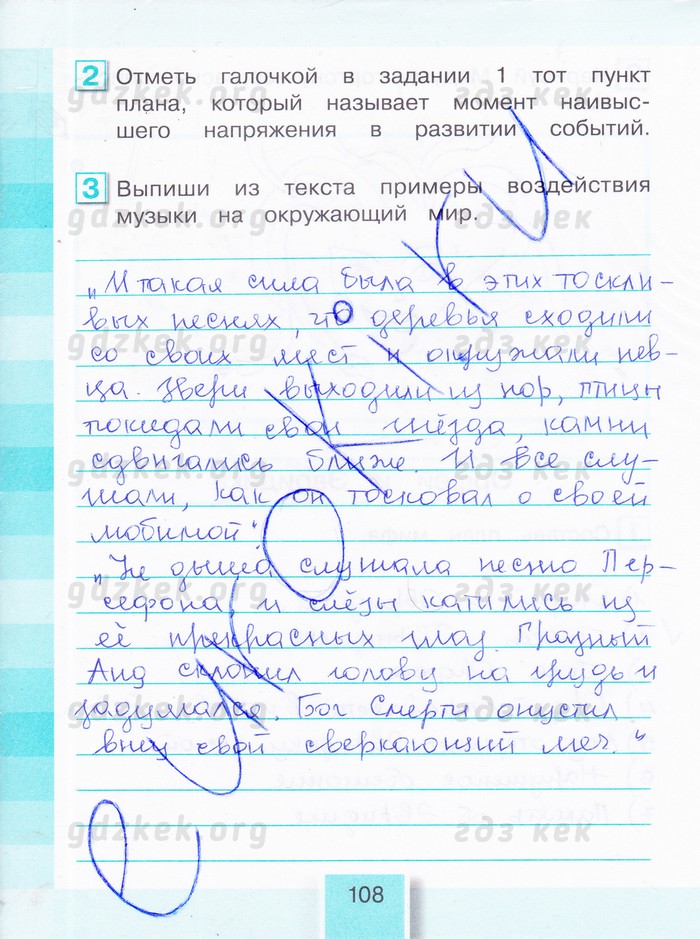 2 Отметь галочкой в задании 1 тот пункт
плана, который называет момент наивыс-
шего напряжения в развитии событий.
3 Выпиши из текста примеры воздействия
музыки на окружающий мир.
„И такая сила была в этих тоскли-
вых песнях, что деревья сходили
со своих мест и окружали пев-
ца. Звери выходили из нор, птицы
покидали свои гнёзда, камни
сдвигались ближе. И все слу-
шали, как он тосковал о своей
любимой".
„Не дыша слушала песню Пер-
сефона, и слёзы катились из
её прекрасных глаз. Грозный
Аид склонил голову на грудь и
задумался. Бог Смерти опустил
вниз свой сверкающий меч."
gdzkek.org гдз кек
108